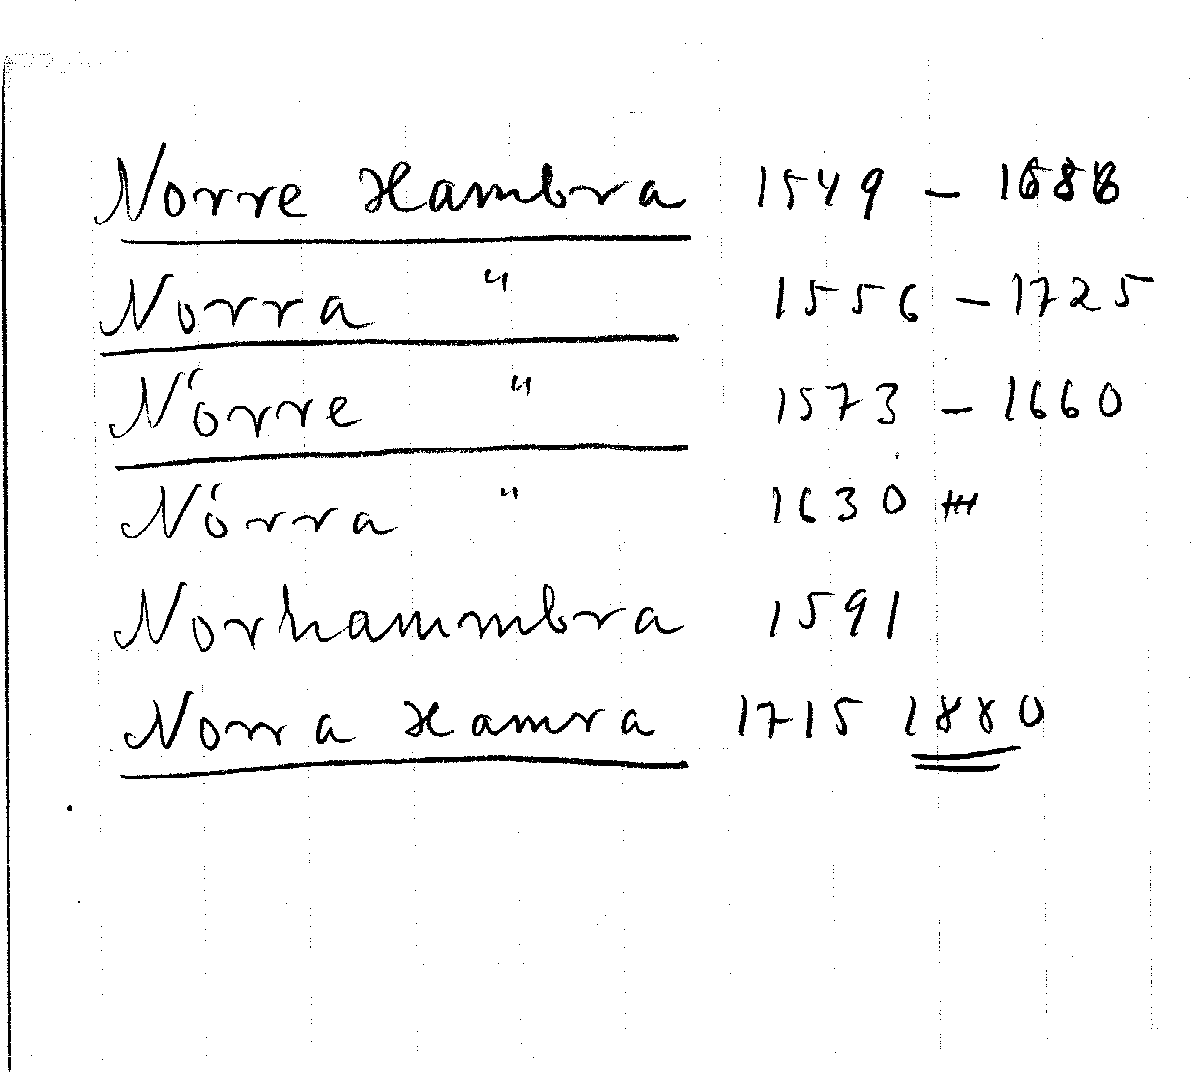 Norre Hambra 1549 – 1688
Norra " 1556 – 1725
Nörre " 1573 – 1660
Nörra " 1630
Norhammbra 1591
Norra Hamra 1715 1880